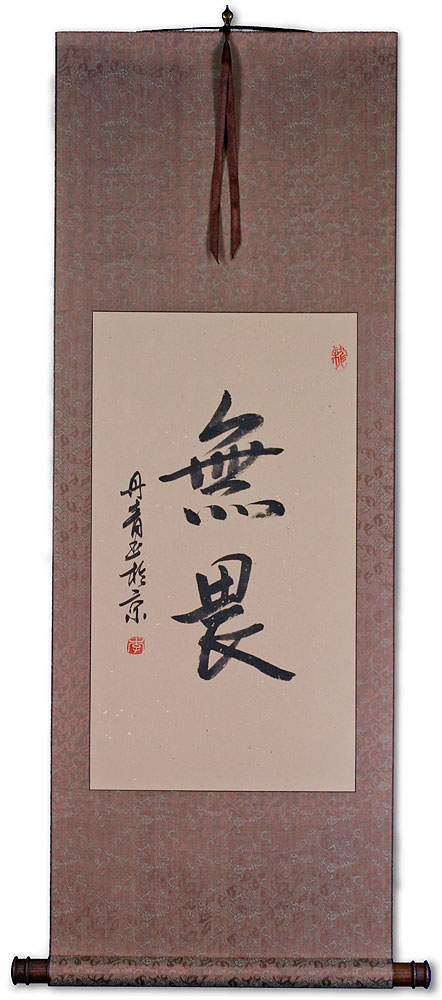 無畏
丹青書於京
李